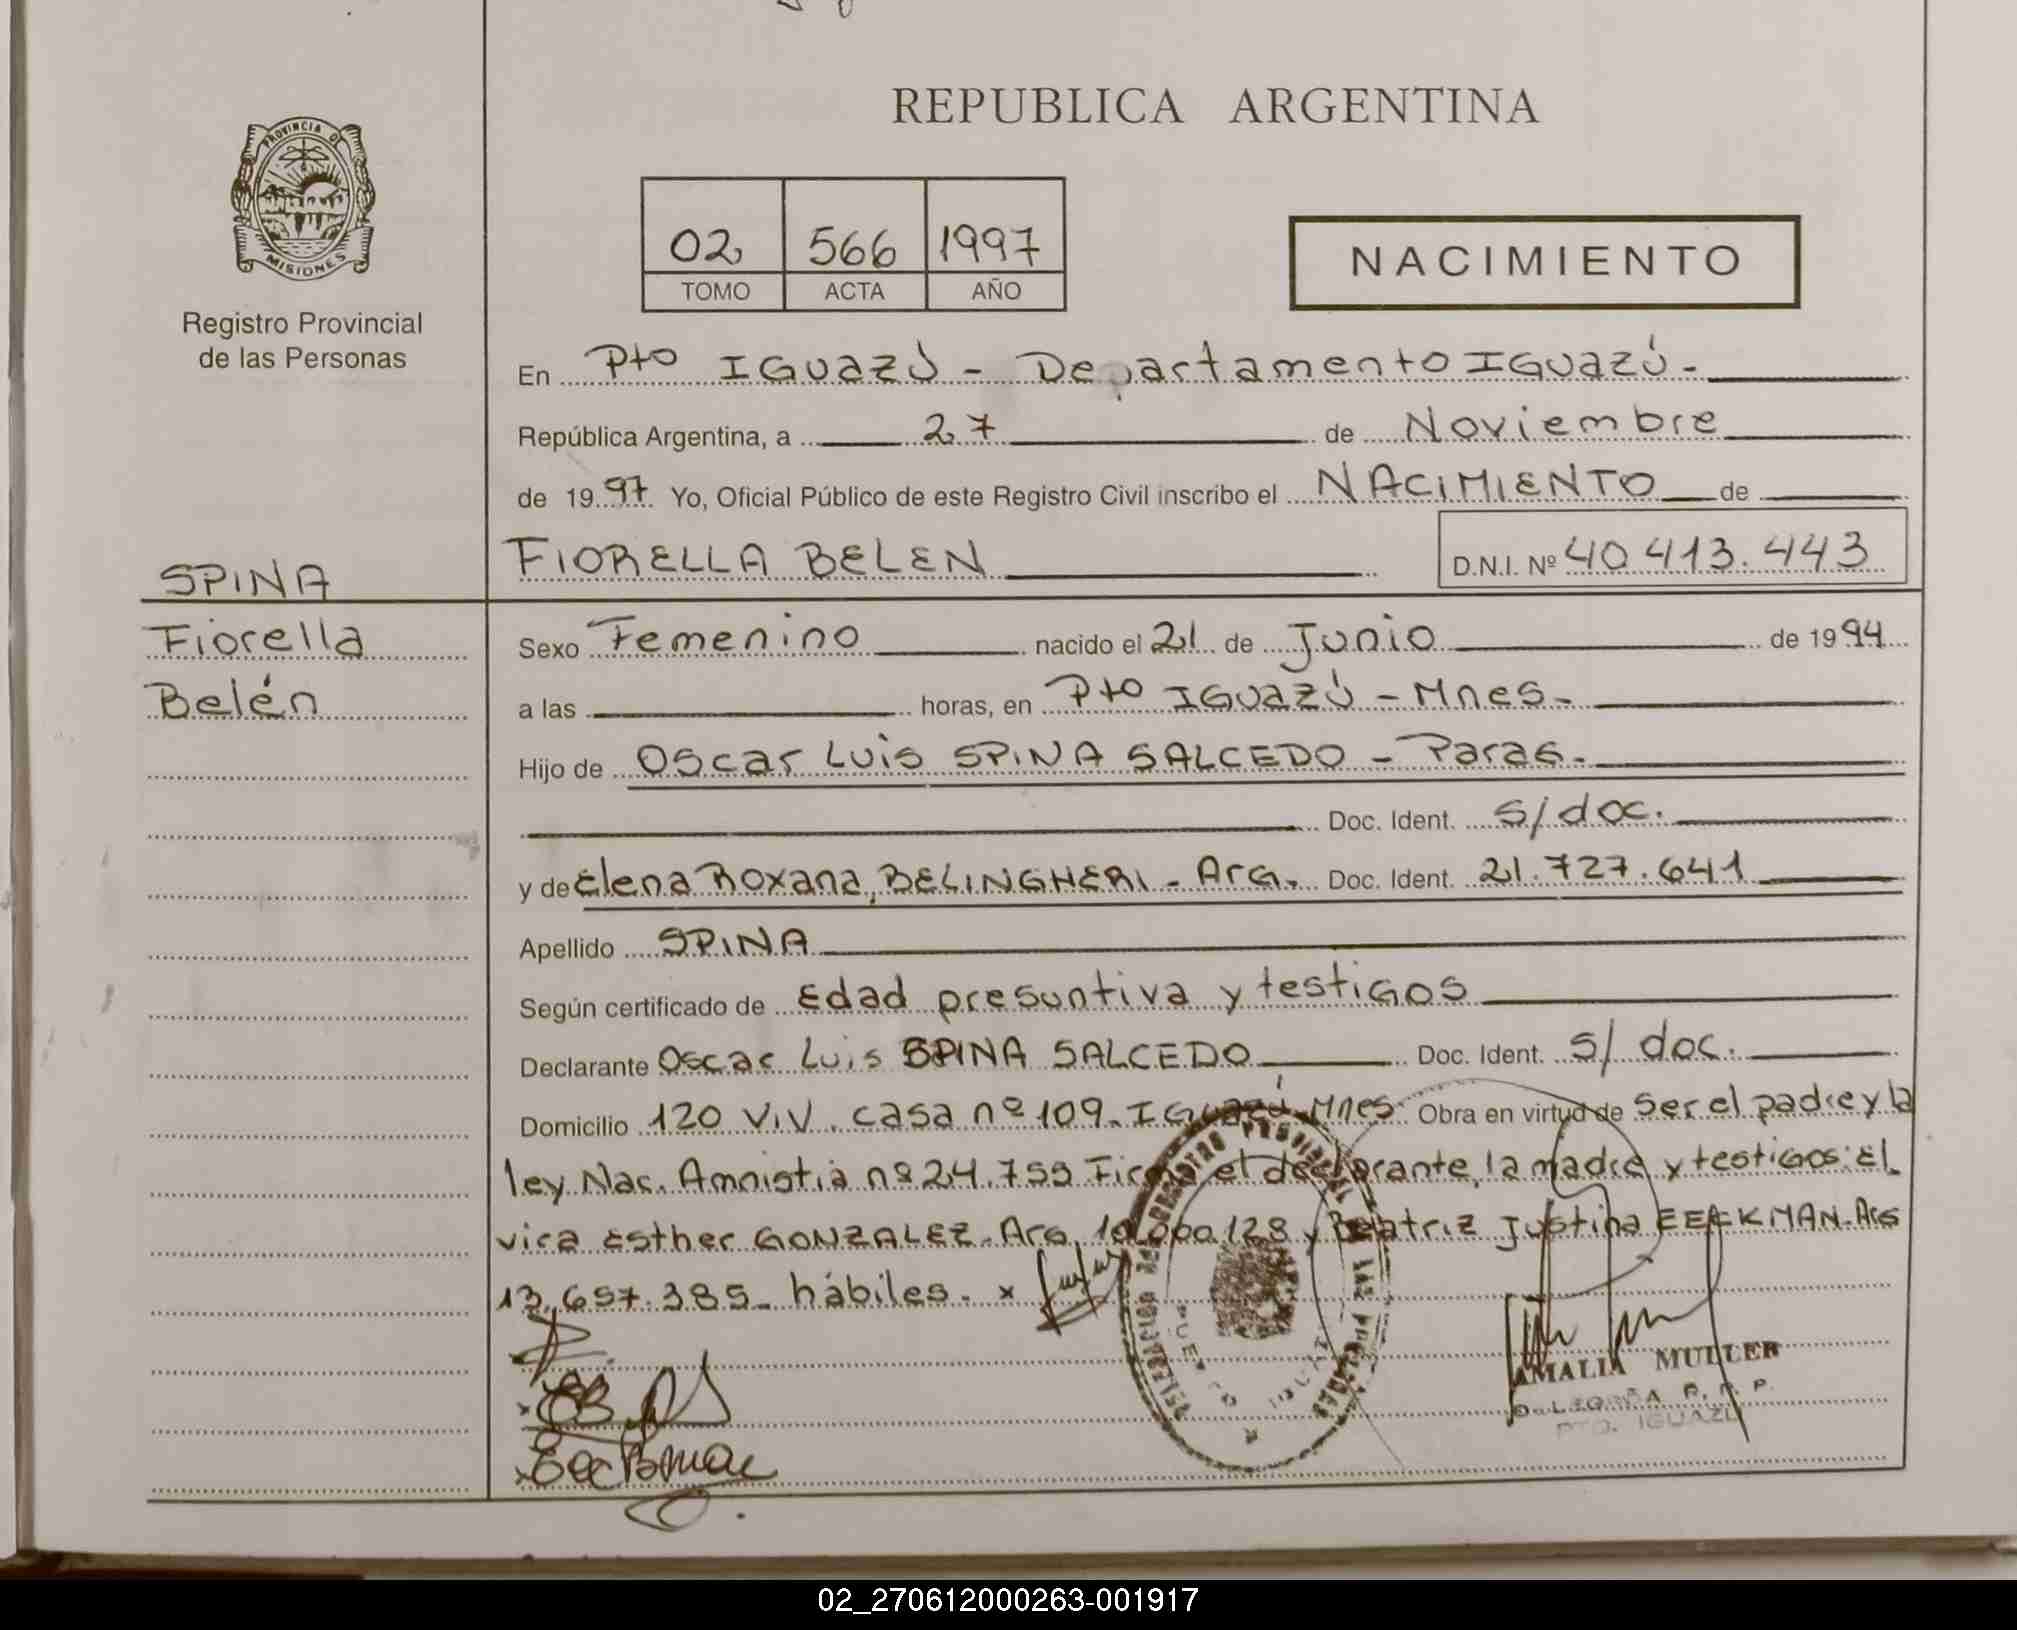 REPUBLICA ARGENTINA
PROVINCIA DE
MISIONES
Registro Provincial
de las Personas
02 566 1997
TOMO ACTA AÑO
NACIMIENTO
En Pto IGUAZÚ - Departamento IGUAZÚ.-
República Argentina, a 27 de Noviembre
de 1997. Yo, Oficial Público de este Registro Civil inscribo el NACIMIENTO de
FIORELLA BELEN D.N.I. Nº 40 413.443
SPINA
Fiorella
Belén
Sexo Femenino nacido el 21 de Junio de 1994
a las horas, en Pto IGUAZÚ - Mnes-
Hijo de Oscar Luis SPINA SALCEDO - Parag.-
Doc. Ident. s/doc.
y de Elena Roxana, BELINGHERI - Arg. Doc. Ident. 21.727.641
Apellido SPINA
Según certificado de Edad presuntiva y testigos
Declarante Oscar Luis SPINA SALCEDO Doc. Ident. s/ doc.
Domicilio 120 Viv. casa nº 109. Iguazú-Mnes. Obra en virtud de Ser el padre y la
ley Nac. Amnistia nº 24.755 Firma el declarante, la madre y testigos: El
vira Esther GONZALEZ-Arg. y Beatriz Justina Arg
13.657.385- hábiles. x
AMALIA MULLER
DELEGADA R. P. P.
PTO. IGUAZU
02_270612000263-001917